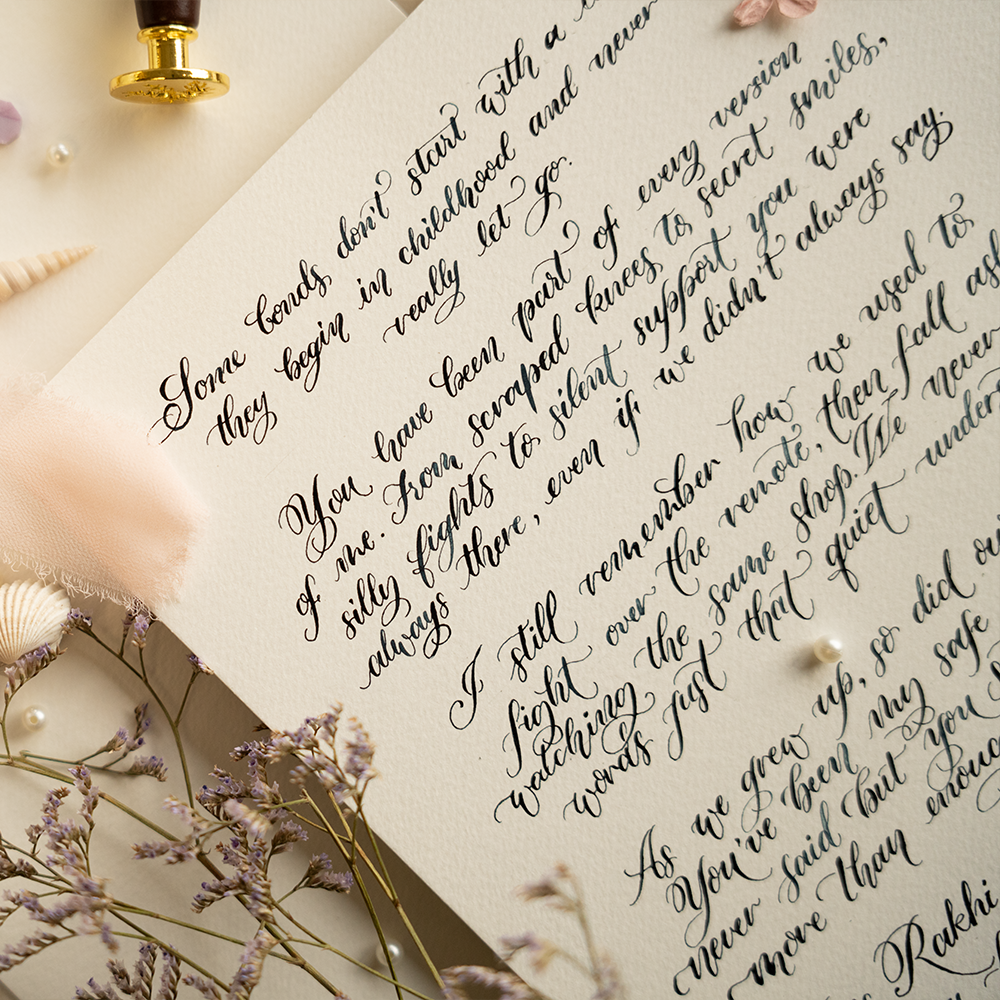 Some bonds don't start with a
they begin in childhood and never
really let go.
You have been part of every version
of me. From scraped knees to secret smiles,
silly fights to silent support you were
always there, even if we didn't always say.
I still remember how we used to
fight over the remote, then fall
watching the same shop. We never
words just that quiet
As we grew up, so did
You've been my safe
never said but you
more than
Rakhi